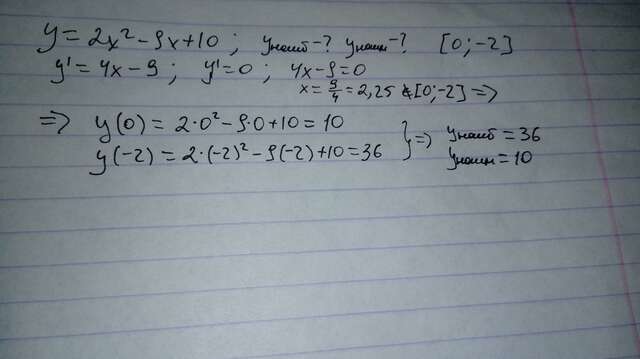 y = 2x² - 9x + 10 ; yнаиб - ? yнаим - ? [0; -2]
y' = 4x - 9 ; y' = 0 ; 4x - 9 = 0
x = 9/4 = 2,25 ∉ [0; -2] =>
=> y(0) = 2·0² - 9·0 + 10 = 10
y(-2) = 2·(-2)² - 9(-2) + 10 = 36 } => yнаиб = 36
yнаим = 10